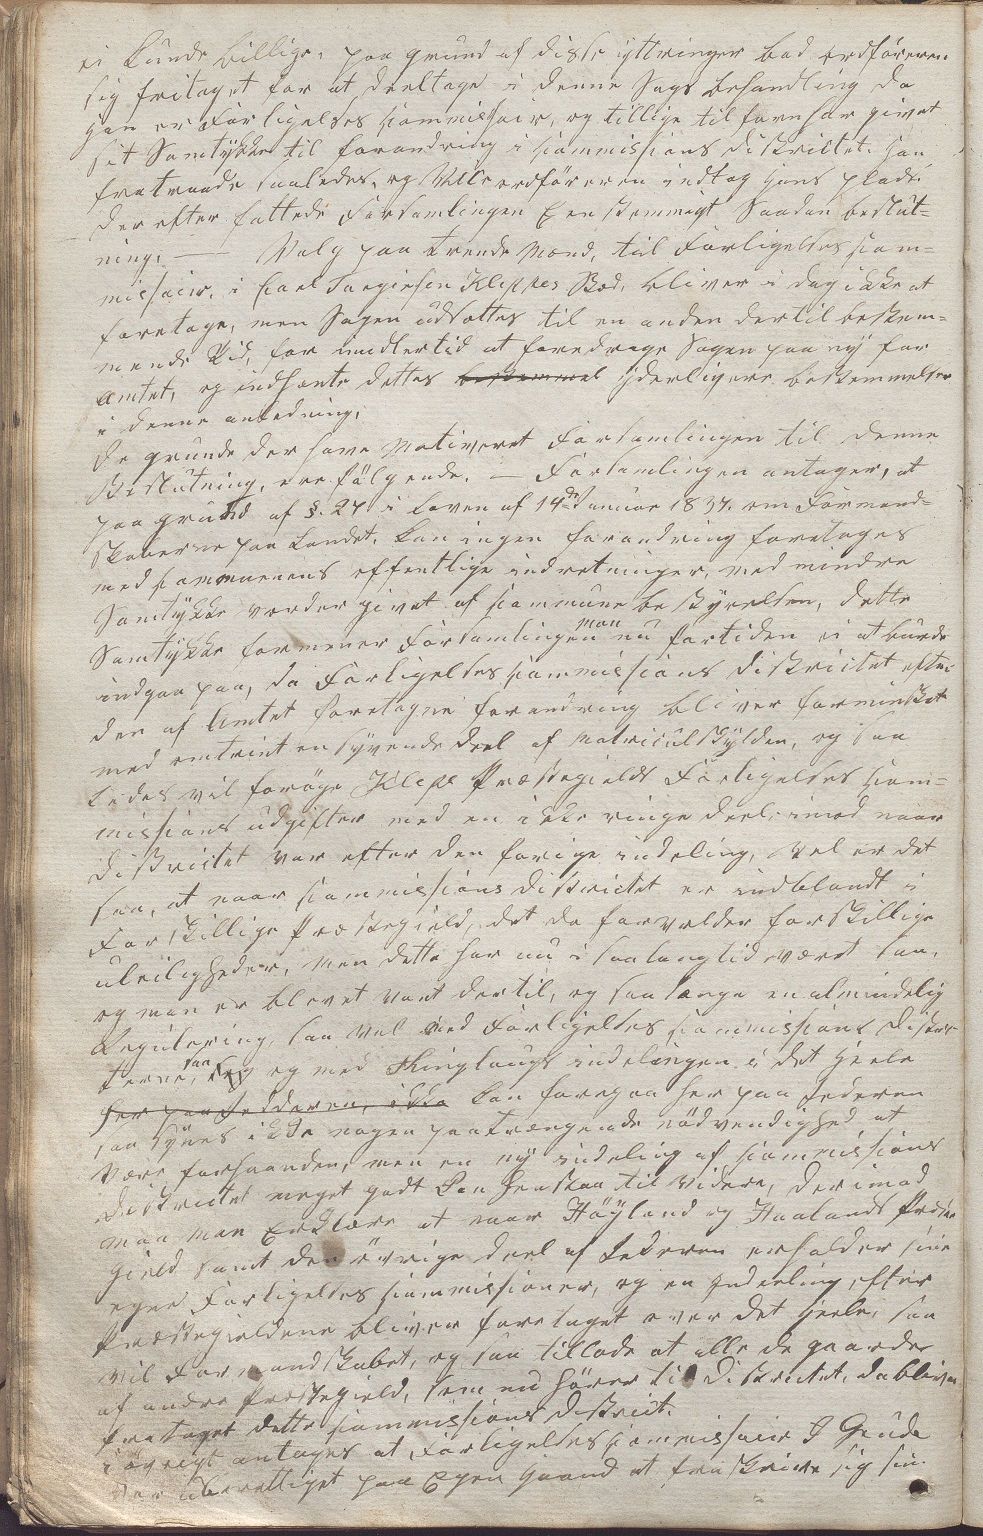 ei kunde billige, paa grund af disse yttringer bad ordføreren
sig fritaget for at deeltage i denne Sags behandling da
han er Forligelses Commissair, og tillige tilforn har givet
sit Samtykke til forandring i Commissions Districtet. Han
fratraade saaledes, og Viceordføreren indtog hans plads.
der efter fattede Forsamlingen Eenstemmigt Saadan beslut-
ning. — Valg paa trende Mænd, til Forligelses Com-
missair, i Carl Torgiersen Kleppes Sted, bliver i dag ikke at
foretage, men Sagen udsættes til en anden dertil bestem-
mende Tid, for imidlertid at foredrage Sagen paa ny for
Amtet, og indhente dettes bestemmel yderligere bestemmelser
i denne anledning.
De grunde der have Motiveret Forsamlingen til denne
Beslutning, ere følgende. — Forsamlingen antager, at
paa grund af §. 27 i Loven af 14de Januar 1837. om Formænd-
skaberne paa Landet, kan ingen forandring foretages
med Communens offentlige indretninger, med mindre
Samtykke vorder givet af Commune bestyrelsen, dette
Samtykke formener Forsamlingen man nu fortiden ei at burde
indgaa paa, da Forligelses Commissions Districtet efter
den af Amtet foretagne forandring bliver forminsket
med omtrint en syvende deel af Matriculskylden, og saa
ledes vil forøge Klepe Præstegields Forligelses Com-
missions udgifter med en ikke ringe deel, imod naar
Districtet var efter den forige indeling, Vel er det
saa, at naar Commissions Districtet er indblandt i
Forskillige Præstegield, det da forvolder forskillige
uleiligheder, men dette har nu i saa lang tid været saa,
og man er blevet vant dertil, og saa længe en almindelig
Regulering, saa vel med Forligelses Commissions Distric-
terne, saa og med Thinglaugs indelingen i det Heele
her paa Jedderen, ikke kan foregaa her paa Jederen
saa synes ikke nogen paatrængende nødvendighed at
være forhaanden, men en ny indeling af Commissions
Districtet meget godt kan henstaa til Videre, derimod
maa man Erklære at naar Høyland og Haalands Præste
gield samt den øvrige deel af Jederen erholder sine
egne Forligelses Commissioner, og en Indeeling efter
Præstegieldene bliver foretaget over det Heele, saa
vil Formandskabet, og saa tillade at alle de gaarder
af andre Præstegield, som nu hører til Districtet, da bliver
fra taget dette Commissions District.
i øvrigt antages at Forligelses Commissair J Gjeude
var uberettiget paa Egen Haand at fraskrive sig sin